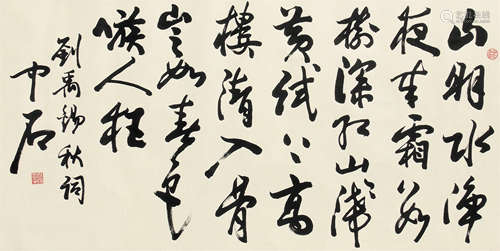 山明水淨
夜來霜數
樹深紅出淺
黄試上高
樓清入骨
豈如春色
嗾人狂
劉禹錫秋詞
中石